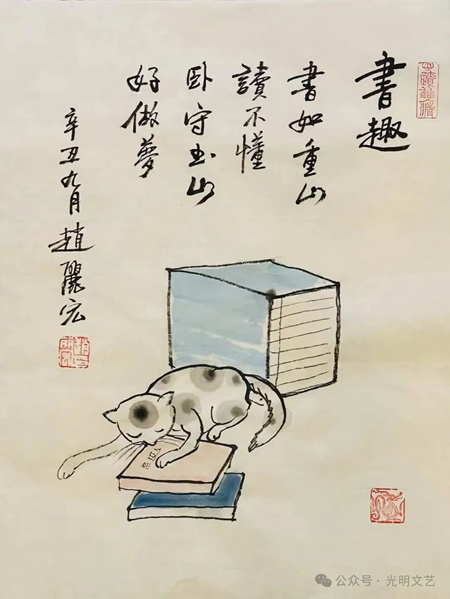 書趣
書如重山
讀不懂
卧守书山
好做夢
辛丑九月趙麗宏
公众号·光明文艺